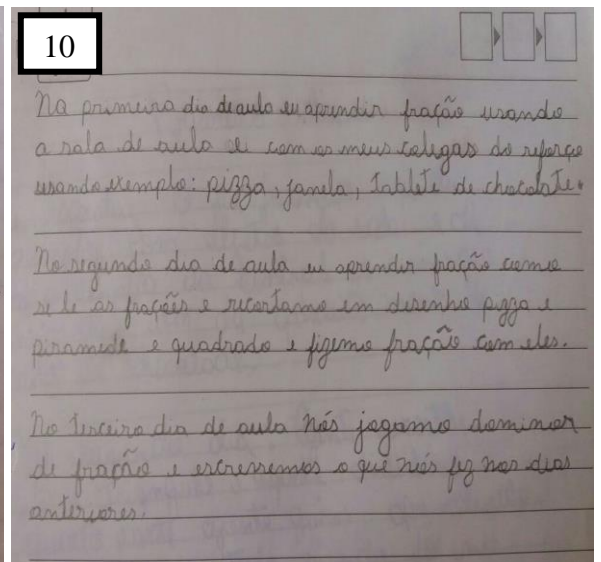 10
Na primeira dia de aula eu aprendir fração usando
a sala de aula e com os meus colegas do reforço
usando exemplo: pizza, janela, tablete de chocolate.
No segundo dia de aula eu aprendir fração como
se le as fraçõės e recortamo em desenho pizza e
piramede e quadrado e fizemo fração com eles.
No terceiro dia de aula nós jogamo dominor
de fração e escrevemos o que nós fez nos dias
anteriores.